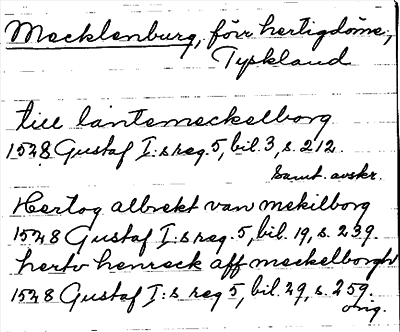 Mecklenburg, förr hertigdöme,
Tyskland
till lantemeckelborg
1528 Gustaf I:s reg. 5, bil. 3, s. 212.
Samt. avskr.
Hertog albrekt van mekilborg
1528 Gustaf I:s reg. 5, bil. 19, s. 239.
hertv henreck aff meckelborgh
1528 Gustaf I:s reg 5, bil. 29, s. 259.
orig.